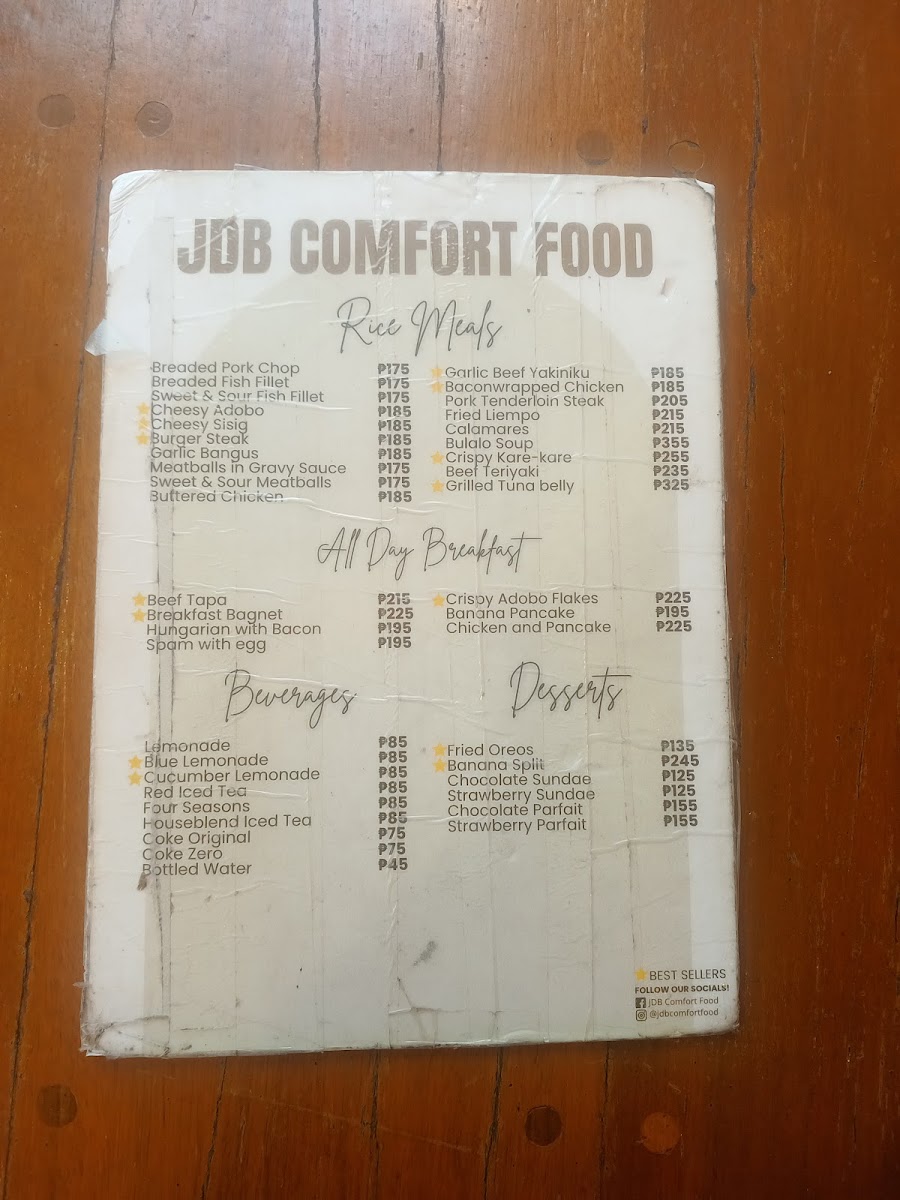 JDB COMFORT FOOD
Rice Meals
Breaded Pork Chop ₱175
Breaded Fish Fillet ₱175
Sweet & Sour Fish Fillet ₱175
Cheesy Adobo ₱185
Cheesy Sisig ₱185
Burger Steak ₱185
Garlic Bangus ₱185
Meatballs in Gravy Sauce ₱175
Sweet & Sour Meatballs ₱175
Buttered Chicken ₱185
Garlic Beef Yakiniku ₱185
Baconwrapped Chicken ₱185
Pork Tenderloin Steak ₱205
Fried Liempo ₱215
Calamares ₱215
Bulalo Soup ₱355
Crispy Kare-kare ₱255
Beef Teriyaki ₱235
Grilled Tuna belly ₱325
All Day Breakfast
Beef Tapa ₱215
Breakfast Bagnet ₱225
Hungarian with Bacon ₱195
Spam with egg ₱195
Crispy Adobo Flakes ₱225
Banana Pancake ₱195
Chicken and Pancake ₱225
Beverages
Lemonade ₱85
Blue Lemonade ₱85
Cucumber Lemonade ₱85
Red Iced Tea ₱85
Four Seasons ₱85
Houseblend Iced Tea ₱85
Coke Original ₱75
Coke Zero ₱75
Bottled Water ₱45
Desserts
Fried Oreos ₱135
Banana Split ₱245
Chocolate Sundae ₱125
Strawberry Sundae ₱125
Chocolate Parfait ₱155
Strawberry Parfait ₱155
BEST SELLERS
FOLLOW OUR SOCIALS!
JDB Comfort Food
@jdbcomfortfood